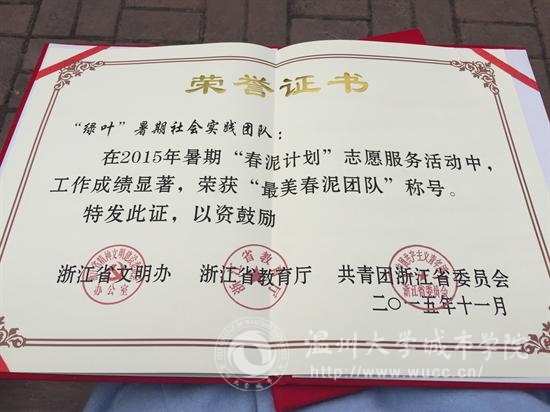 荣誉证书
“绿叶”暑期社会实践团队：
在2015年暑期“春泥计划”志愿服务活动中，
工作成绩显著，荣获“最美春泥团队”称号。
特发此证，以资鼓励
浙江省文明办 浙江省教育厅 共青团浙江省委员会
二〇一五年十一月
温州大学城市学院
http://www.wucc.cn/